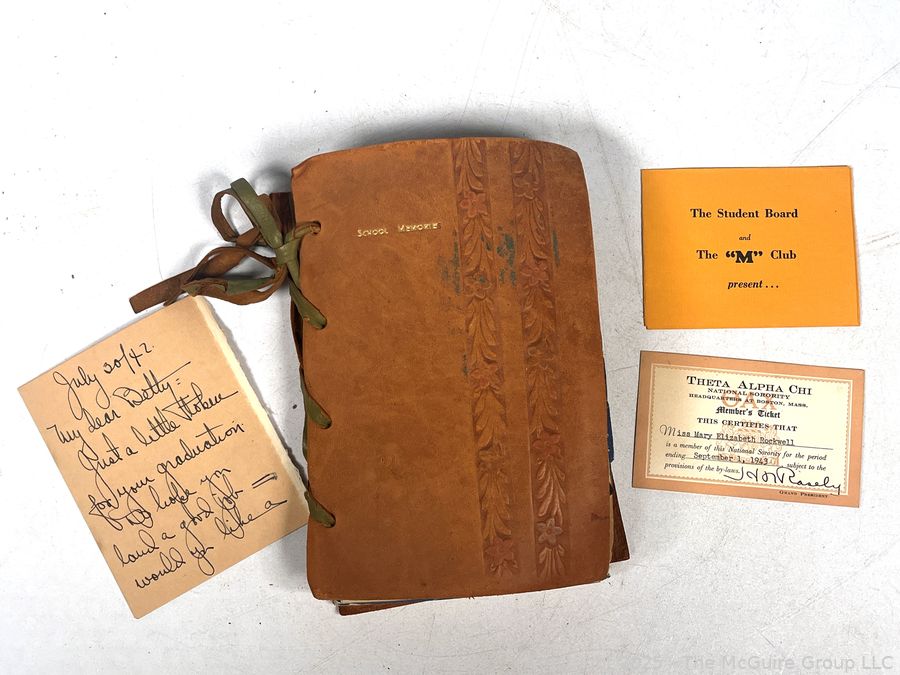 School Memories
July 20/42.
My dear Betty =
Just a little token
for your graduation.
land a good job =
would you like a
The Student Board
and
The "M" Club
present...
THETA ALPHA CHI
NATIONAL SORORITY
HEADQUARTERS AT BOSTON, MASS.
ΘAX
Member's Ticket
THIS CERTIFIES THAT
Miss Mary Elizabeth Rockwell
is a member of this National Sorority for the period
ending September 1, 1943 subject to the
provisions of the by-laws.
GRAND PRESIDENT
2025 - The McGuire Group LLC